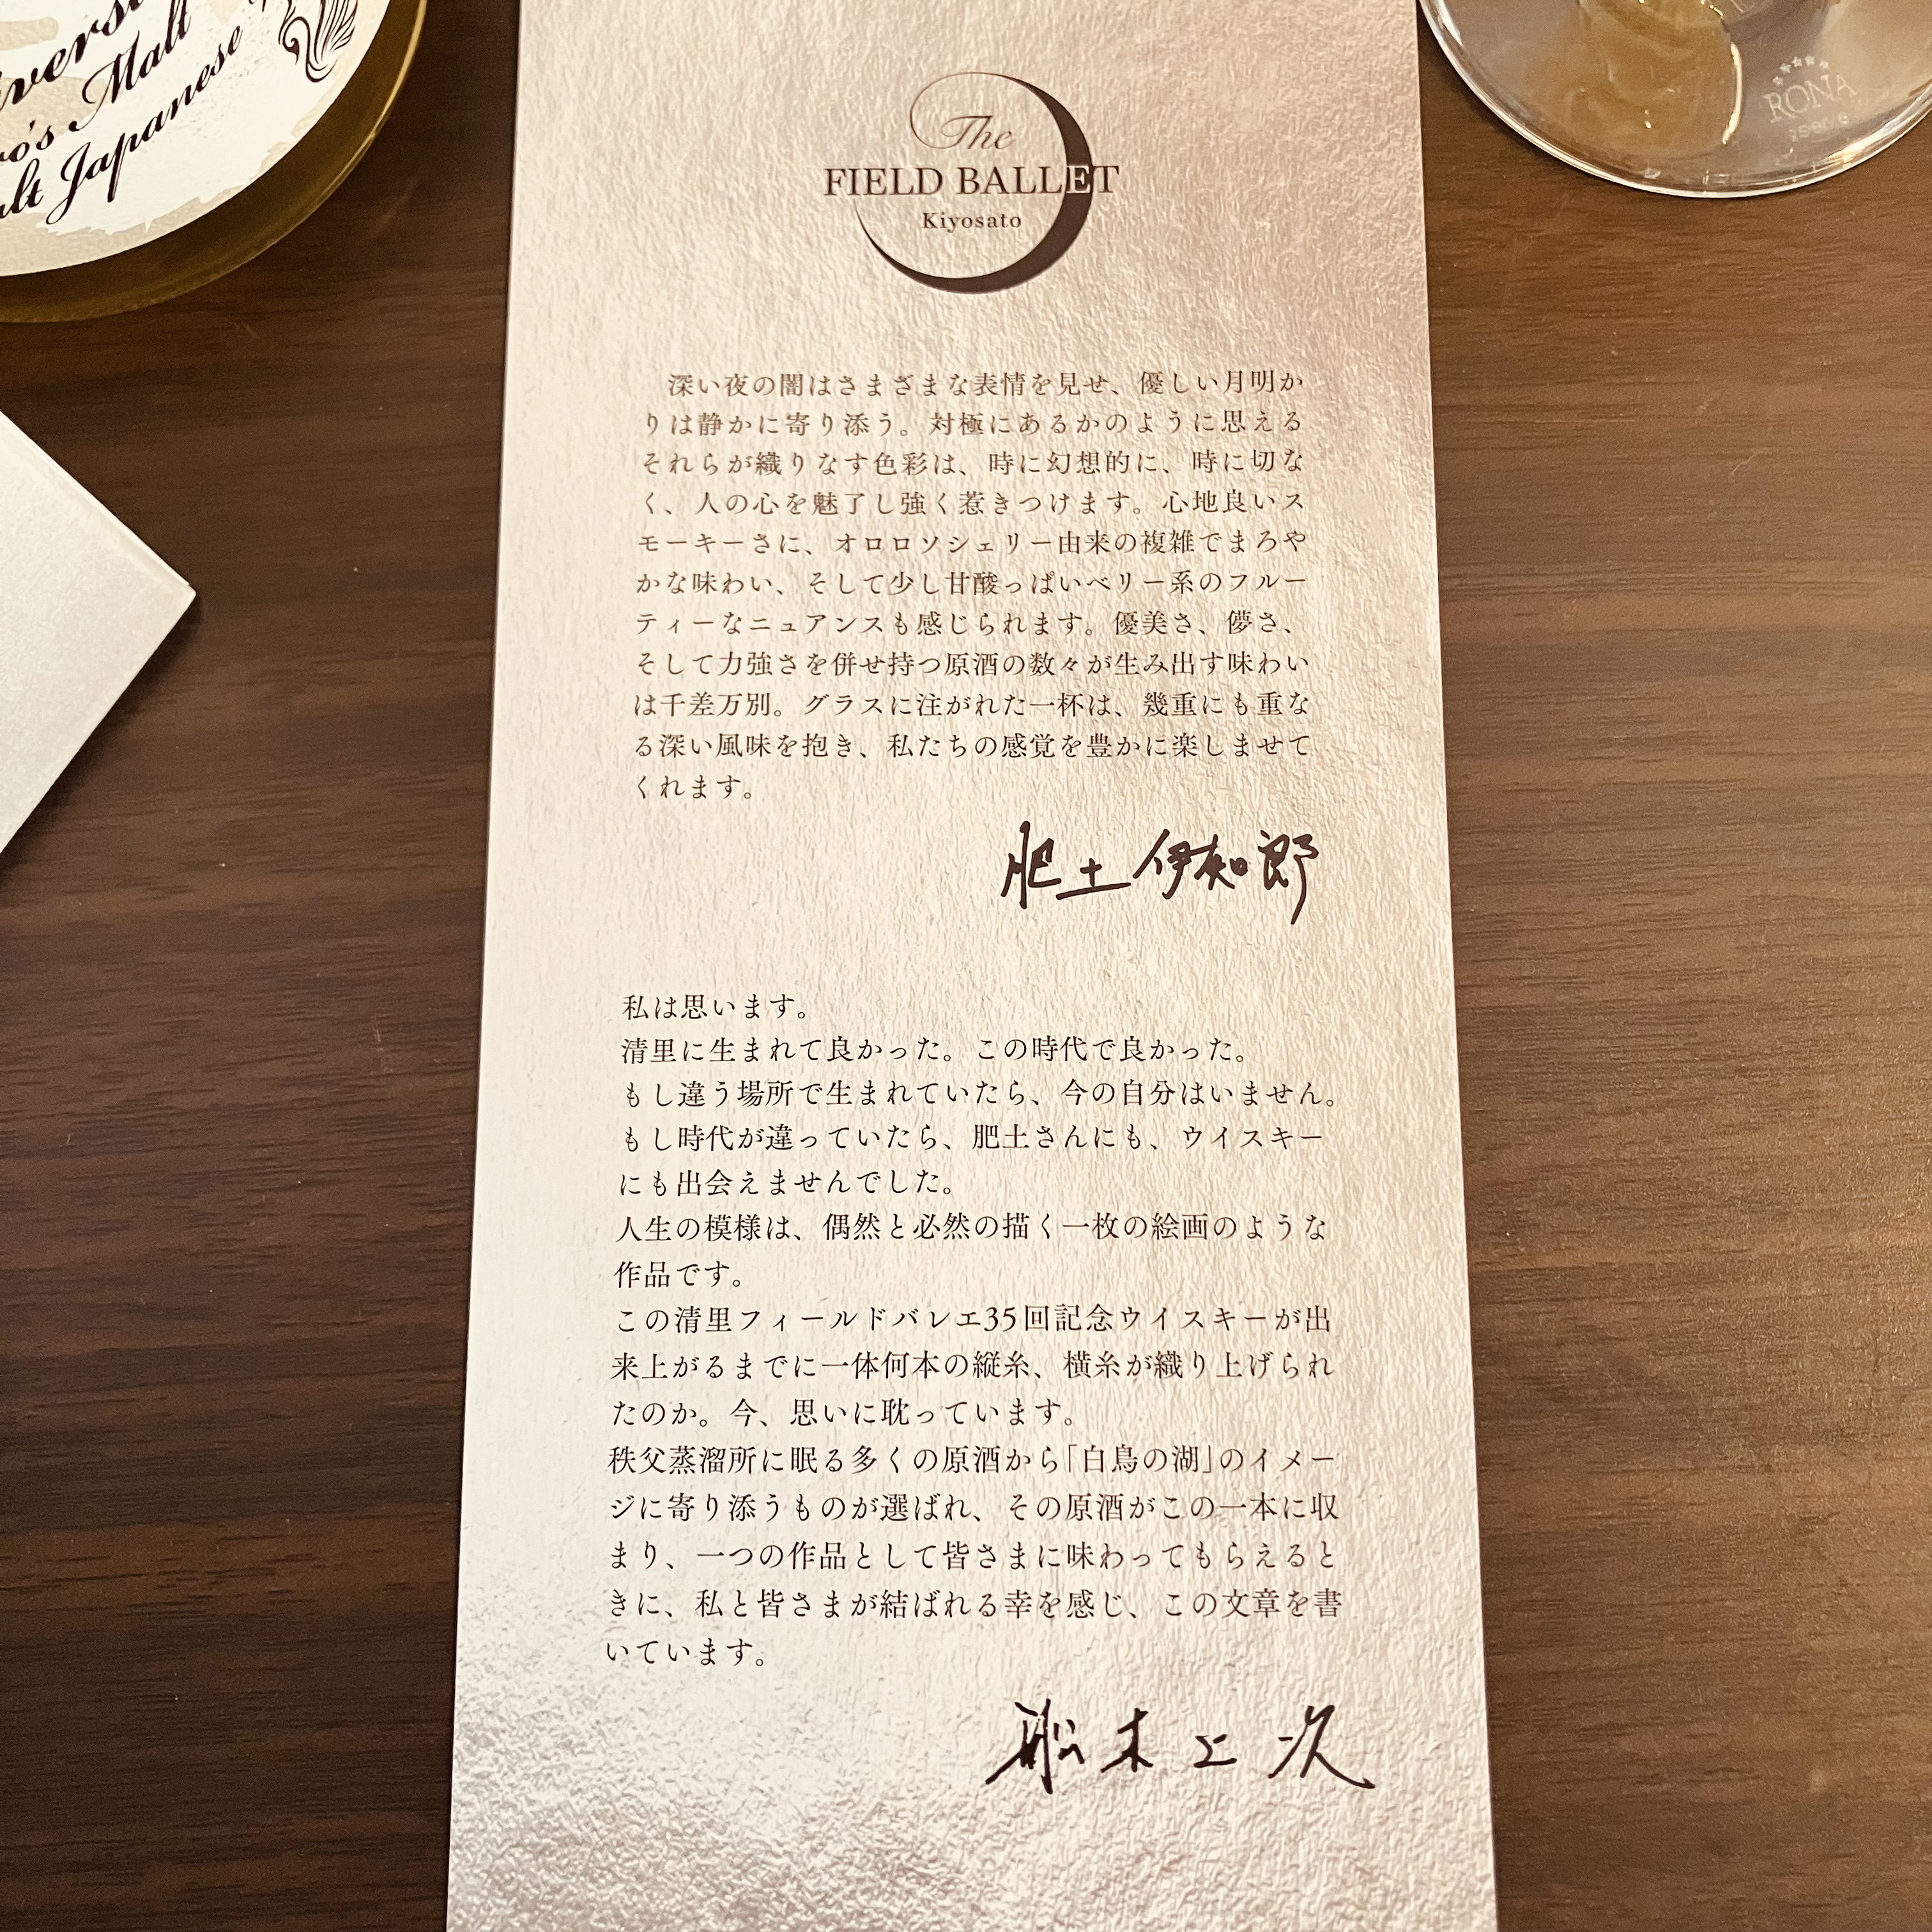 Malt
Japanese
RONA
The
FIELD BALLET
Kiyosato
深い夜の闇はさまざまな表情を見せ、優しい月明か
りは静かに寄り添う。対極にあるかのように思える
それらが織りなす色彩は、時に幻想的に、時に切な
く、人の心を魅了し強く惹きつけます。心地良いス
モーキーさに、オロロソシェリー由来の複雑でまろや
かな味わい、そして少し甘酸っぱいベリー系のフルー
ティーなニュアンスも感じられます。優美さ、儚さ、
そして力強さを併せ持つ原酒の数々が生み出す味わい
は千差万別。グラスに注がれた一杯は、幾重にも重な
る深い風味を抱き、私たちの感覚を豊かに楽しませて
くれます。
肥土伊知郎
私は思います。
清里に生まれて良かった。この時代で良かった。
もし違う場所で生まれていたら、今の自分はいません。
もし時代が違っていたら、肥土さんにも、ウイスキー
にも出会えませんでした。
人生の模様は、偶然と必然の描く一枚の絵画のような
作品です。
この清里フィールドバレエ35回記念ウイスキーが出
来上がるまでに一体何本の縦糸、横糸が織り上げられ
たのか。今、思いに耽っています。
秩父蒸溜所に眠る多くの原酒から「白鳥の湖」のイメー
ジに寄り添うものが選ばれ、その原酒がこの一本に収
まり、一つの作品として皆さまに味わってもらえると
きに、私と皆さまが結ばれる幸を感じ、この文章を書
いています。
舩木上次